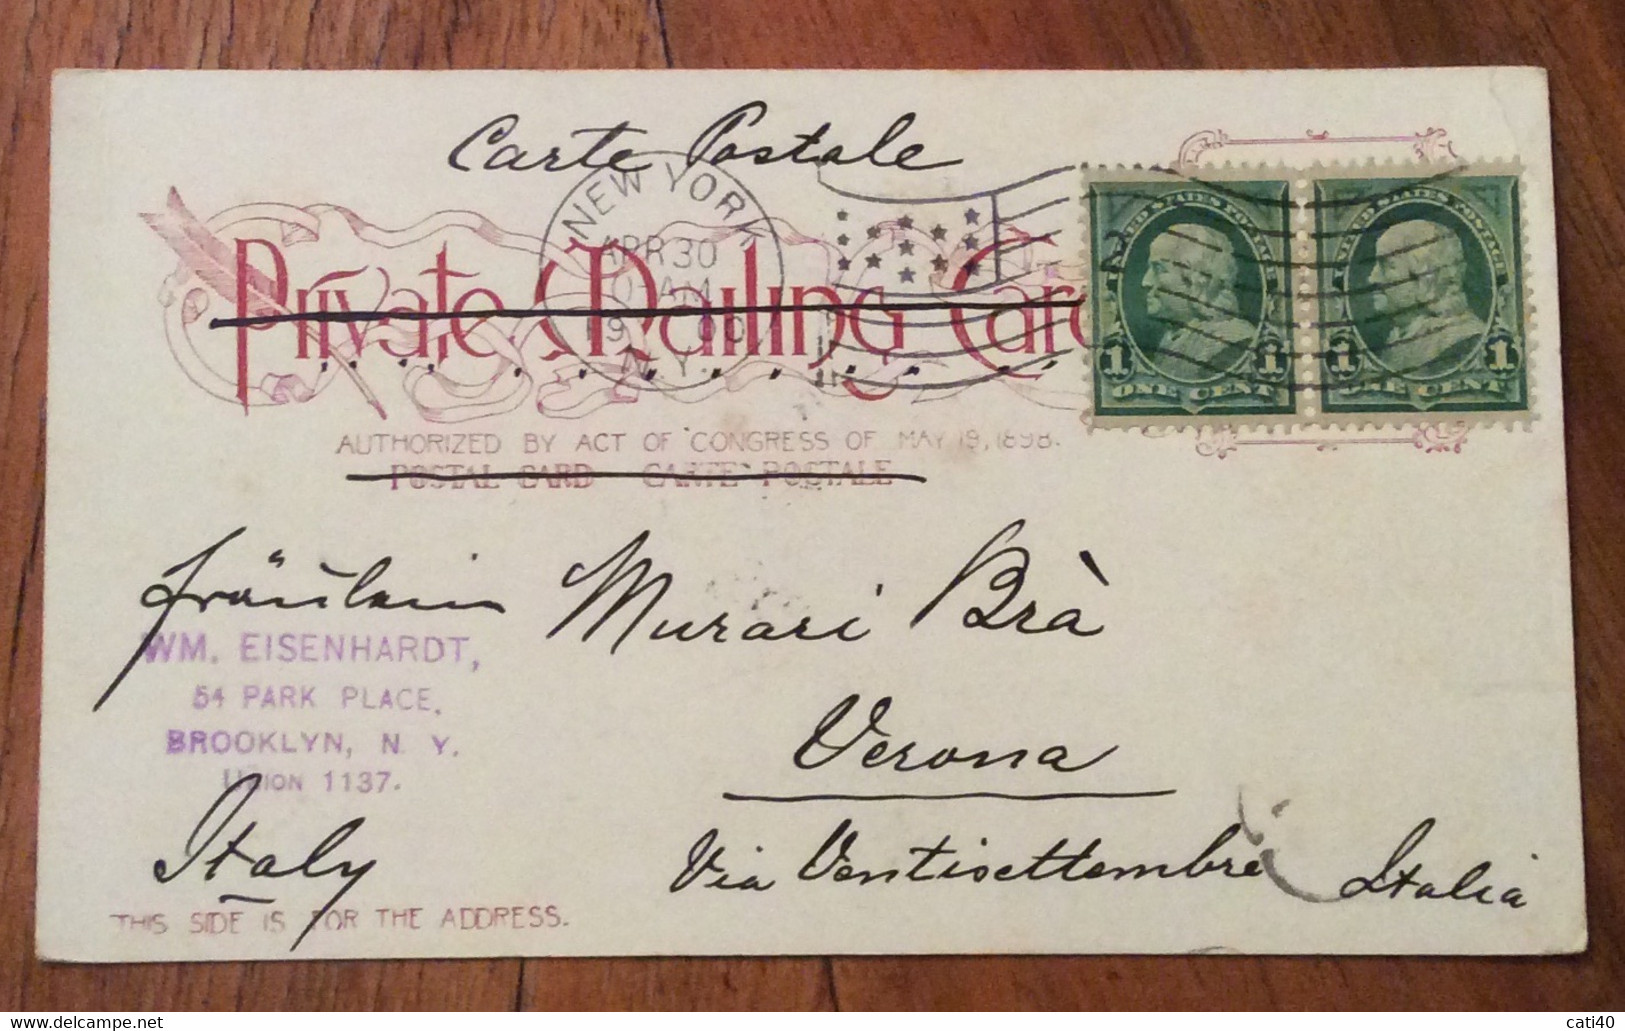 Carte Postale
NEW YORK
APR 30
N.Y.
Private Mailing Card
AUTHORIZED BY ACT OF CONGRESS OF MAY 19, 1898.
POSTAL CARD CARTE POSTALE
UNITED STATES POSTAGE
1 1
ONE CENT
UNITED STATES POSTAGE
1 1
ONE CENT
Fräulein Murari Brà
WM. EISENHARDT,
54 PARK PLACE,
BROOKLYN, N. Y.
UNION 1137.
Verona
Via Ventisettembre Italia
Italy
THIS SIDE IS FOR THE ADDRESS.
cati40